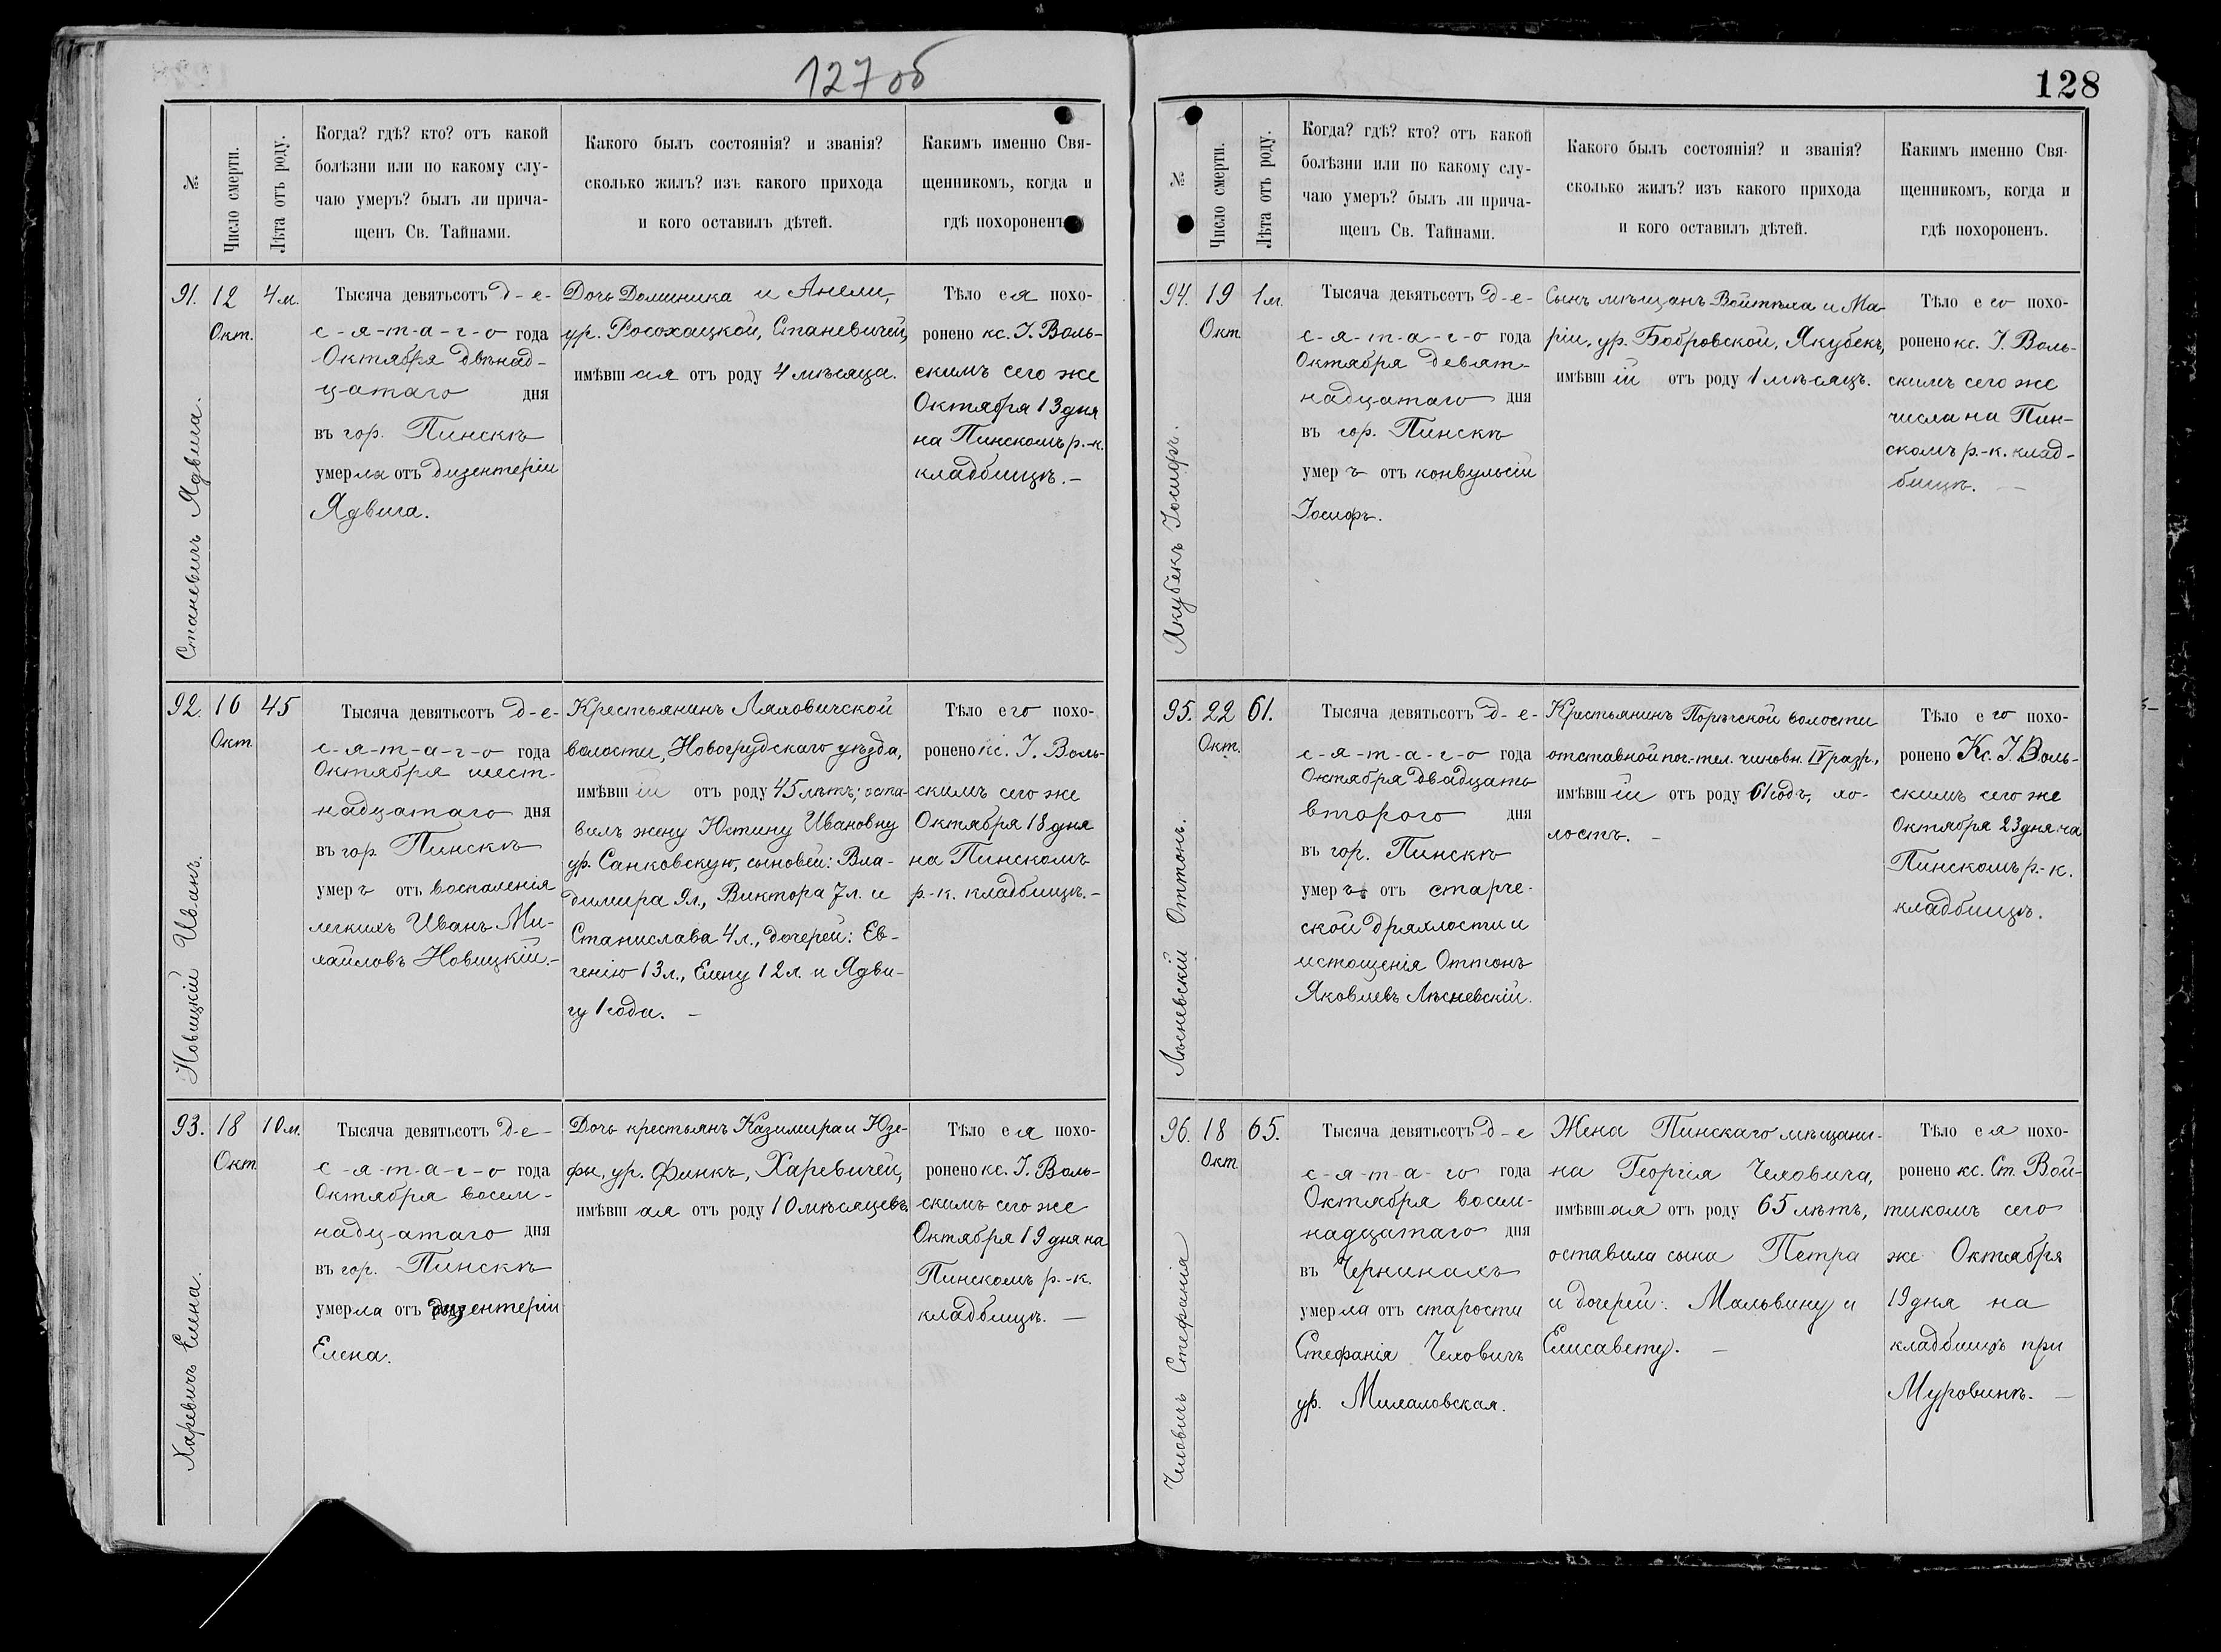 127об
№
Число смерти.
Лѣта отъ роду.
Когда? гдѣ? кто? отъ какой
болѣзни или по какому слу-
чаю умеръ? былъ ли прича-
щенъ Св. Тайнами.
Какого былъ состоянія? и званія?
сколько жилъ? изъ какого прихода
и кого оставилъ дѣтей.
Какимъ именно Свя-
щенникомъ, когда и
гдѣ похороненъ
91.
Станевичъ Ядвига.
12
Окт.
4 м.
Тысяча девятьсотъ д-е-
с-я-т-а-г-о года
Октября двѣнад-
цатаго дня
въ гор. Пинскѣ
умерла отъ дизентеріи
Ядвига.
Дочь Доминика и Анели,
ур. Росохацкой, Станевичей,
имѣвшая отъ роду 4 мѣсяца.
Тѣло ея похо-
ронено кс. І. Воль-
скимъ сего же
Октября 13 дня
на Пинскомъ р.-к.
кладбищѣ. —
92.
Новицкій Иванъ.
16
Окт
45
Тысяча девятьсотъ д-е-
с-я-т-а-г-о года
Октября шест-
надцатаго дня
въ гор. Пинскѣ
умеръ отъ воспаленія
легкихъ Иванъ Ми-
хайловъ Новицкій. —
Крестьянинъ Ляховичской
волости, Новогрудскаго уѣзда,
имѣвшій отъ роду 45 лѣтъ; оста-
вилъ жену Юстину Ивановну
ур. Санковскую, сыновей: Вла-
димира 9 л., Виктора 7 л. и
Станислава 4 л., дочерей: Ев-
генію 13 л., Елену 12 л. и Ядви-
гу 1 года. —
Тѣло его похо-
ронено кс. І. Воль-
скимъ сего же
Октября 18 дня
на Пинскомъ
р.-к. кладбищѣ. —
93.
Харевичъ Елена.
18
Окт
10 м.
Тысяча девятьсотъ д-е-
с-я-т-а-г-о года
Октября восем-
надцатаго дня
въ гор. Пинскѣ
умерла отъ дизентеріи
Елена.
Дочь крестьянъ Казимира и Юзе-
фы, ур. Финкъ, Харевичей,
имѣвшая отъ роду 10 мѣсяцевъ.
Тѣло ея похо-
ронено кс. І. Воль-
скимъ сего же
Октября 19 дня на
Пинскомъ р.-к.
кладбищѣ. —
128
№
Число смерти.
Лѣта отъ роду.
Когда? гдѣ? кто? отъ какой
болѣзни или по какому слу-
чаю умеръ? былъ ли прича-
щенъ Св. Тайнами.
Какого былъ состоянія? и званія?
сколько жилъ? изъ какого прихода
и кого оставилъ дѣтей.
Какимъ именно Свя-
щенникомъ, когда и
гдѣ похороненъ.
94.
Якубекъ Іосифъ.
19
Окт
1 м.
Тысяча девятьсотъ д-е-
с-я-т-а-г-о года
Октября девят-
надцатаго дня
въ гор. Пинскѣ
умеръ отъ конвульсіи
Іосифъ.
Сынъ мѣщанъ Войтѣха и Ма-
ріи, ур. Бобровской, Якубекъ,
имѣвшій отъ роду 1 мѣсяцъ.
Тѣло его похо-
ронено кс. І. Воль-
скимъ сего же
числа на Пин-
скомъ р.-к. клад-
бищѣ. —
95.
Лѣсневскій Оттонъ.
22
Окт.
61.
Тысяча девятьсотъ д-е-
с-я-т-а-г-о года
Октября двадцать
второго дня
въ гор. Пинскѣ
умеръ отъ старче-
ской дряхлости и
истощенія Оттонъ
Яковлевъ Лѣсневскій.
Крестьянинъ Порѣчской волости
отставной поч.-тел. чиновн. IV разр.,
имѣвшій отъ роду 61 годъ, хо-
лостъ. —
Тѣло его похо-
ронено Кс. І. Воль-
скимъ сего же
Октября 23 дня на
Пинскомъ р.-к.
кладбищѣ.
96.
Чеховичъ Стефанія
18
Окт
65.
Тысяча девятьсотъ д-е
с-я-т-а-го года
Октября восем-
надцатаго дня
въ Черникахъ
умерла отъ старости
Стефанія Чеховичъ
ур. Михаловская.
Жена Пинскаго мѣщани-
на Георгія Чеховича,
имѣвшая отъ роду 65 лѣтъ,
оставила сына Петра
и дочерей: Мальвину и
Елисавету. —
Тѣло ея похо-
ронено кс. Ст. Вой-
тикомъ сего
же Октября
19 дня на
кладбищѣ при
Муровинѣ. —